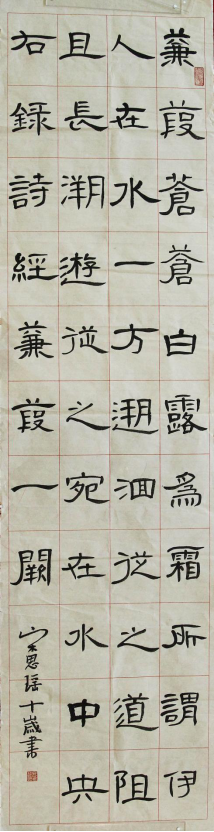 蒹葭蒼蒼白露爲霜所謂伊
人在水一方遡洄從之道阻
且長溯遊從之宛在水中央
右錄詩經蒹葭一闋
思瑶十歲書